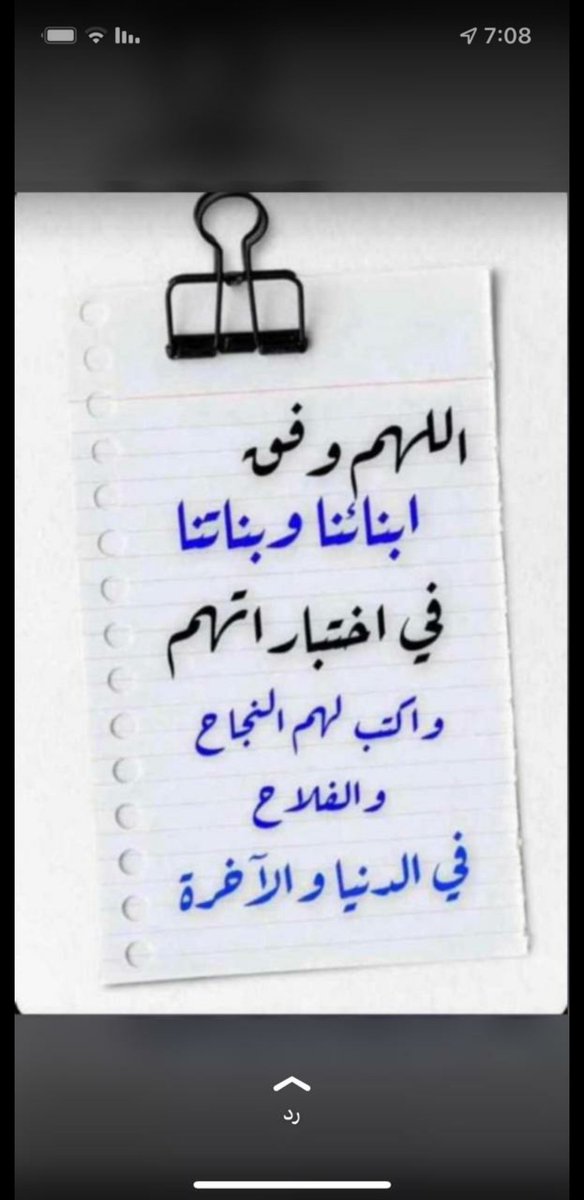 7:08
اللهم وفق
ابنائنا وبناتنا
في اختباراتهم
واكتب لهم النجاح
والفلاح
في الدنيا والآخرة
رد